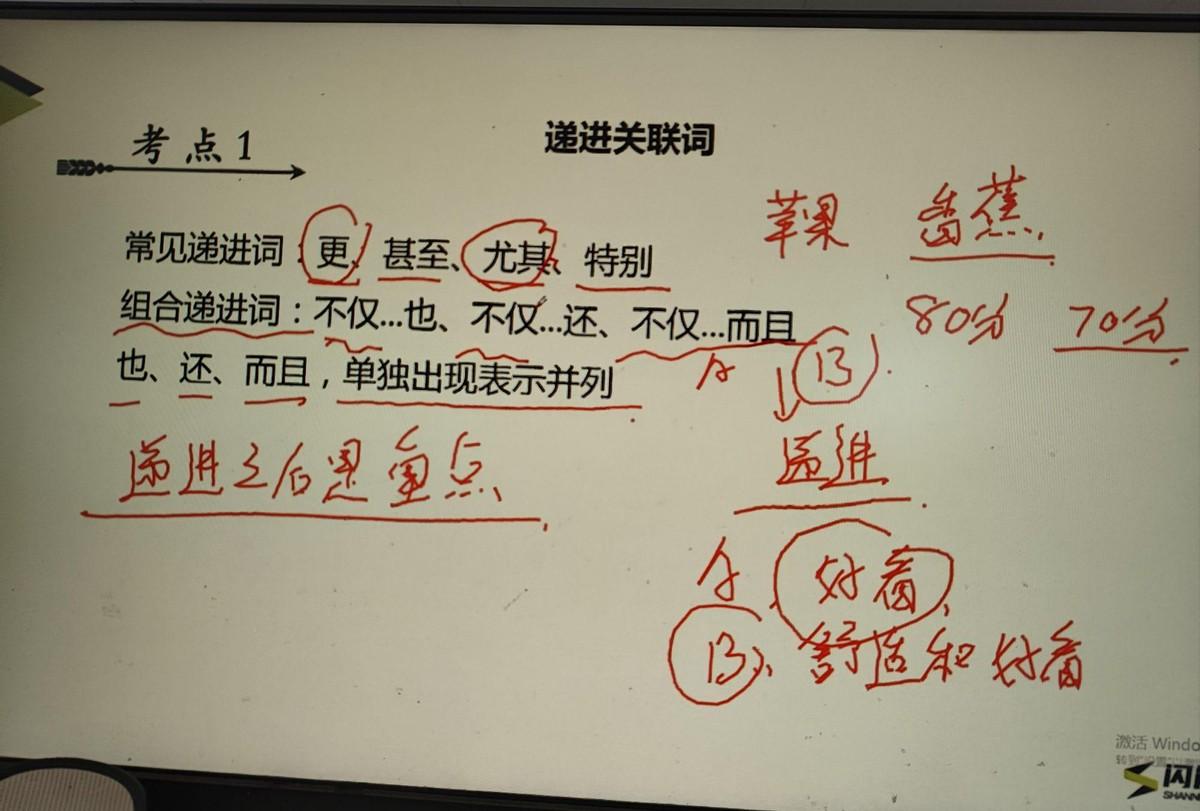 考点1
递进关联词
常见递进词：更、甚至、尤其、特别
组合递进词：不仅...也、不仅...还、不仅...而且
也、还、而且，单独出现表示并列
苹果 香蕉
80分 70分
A B
递进
递进之后是重点
A、好看
B、舒适和好看
激活 Windo
闪
SHANN